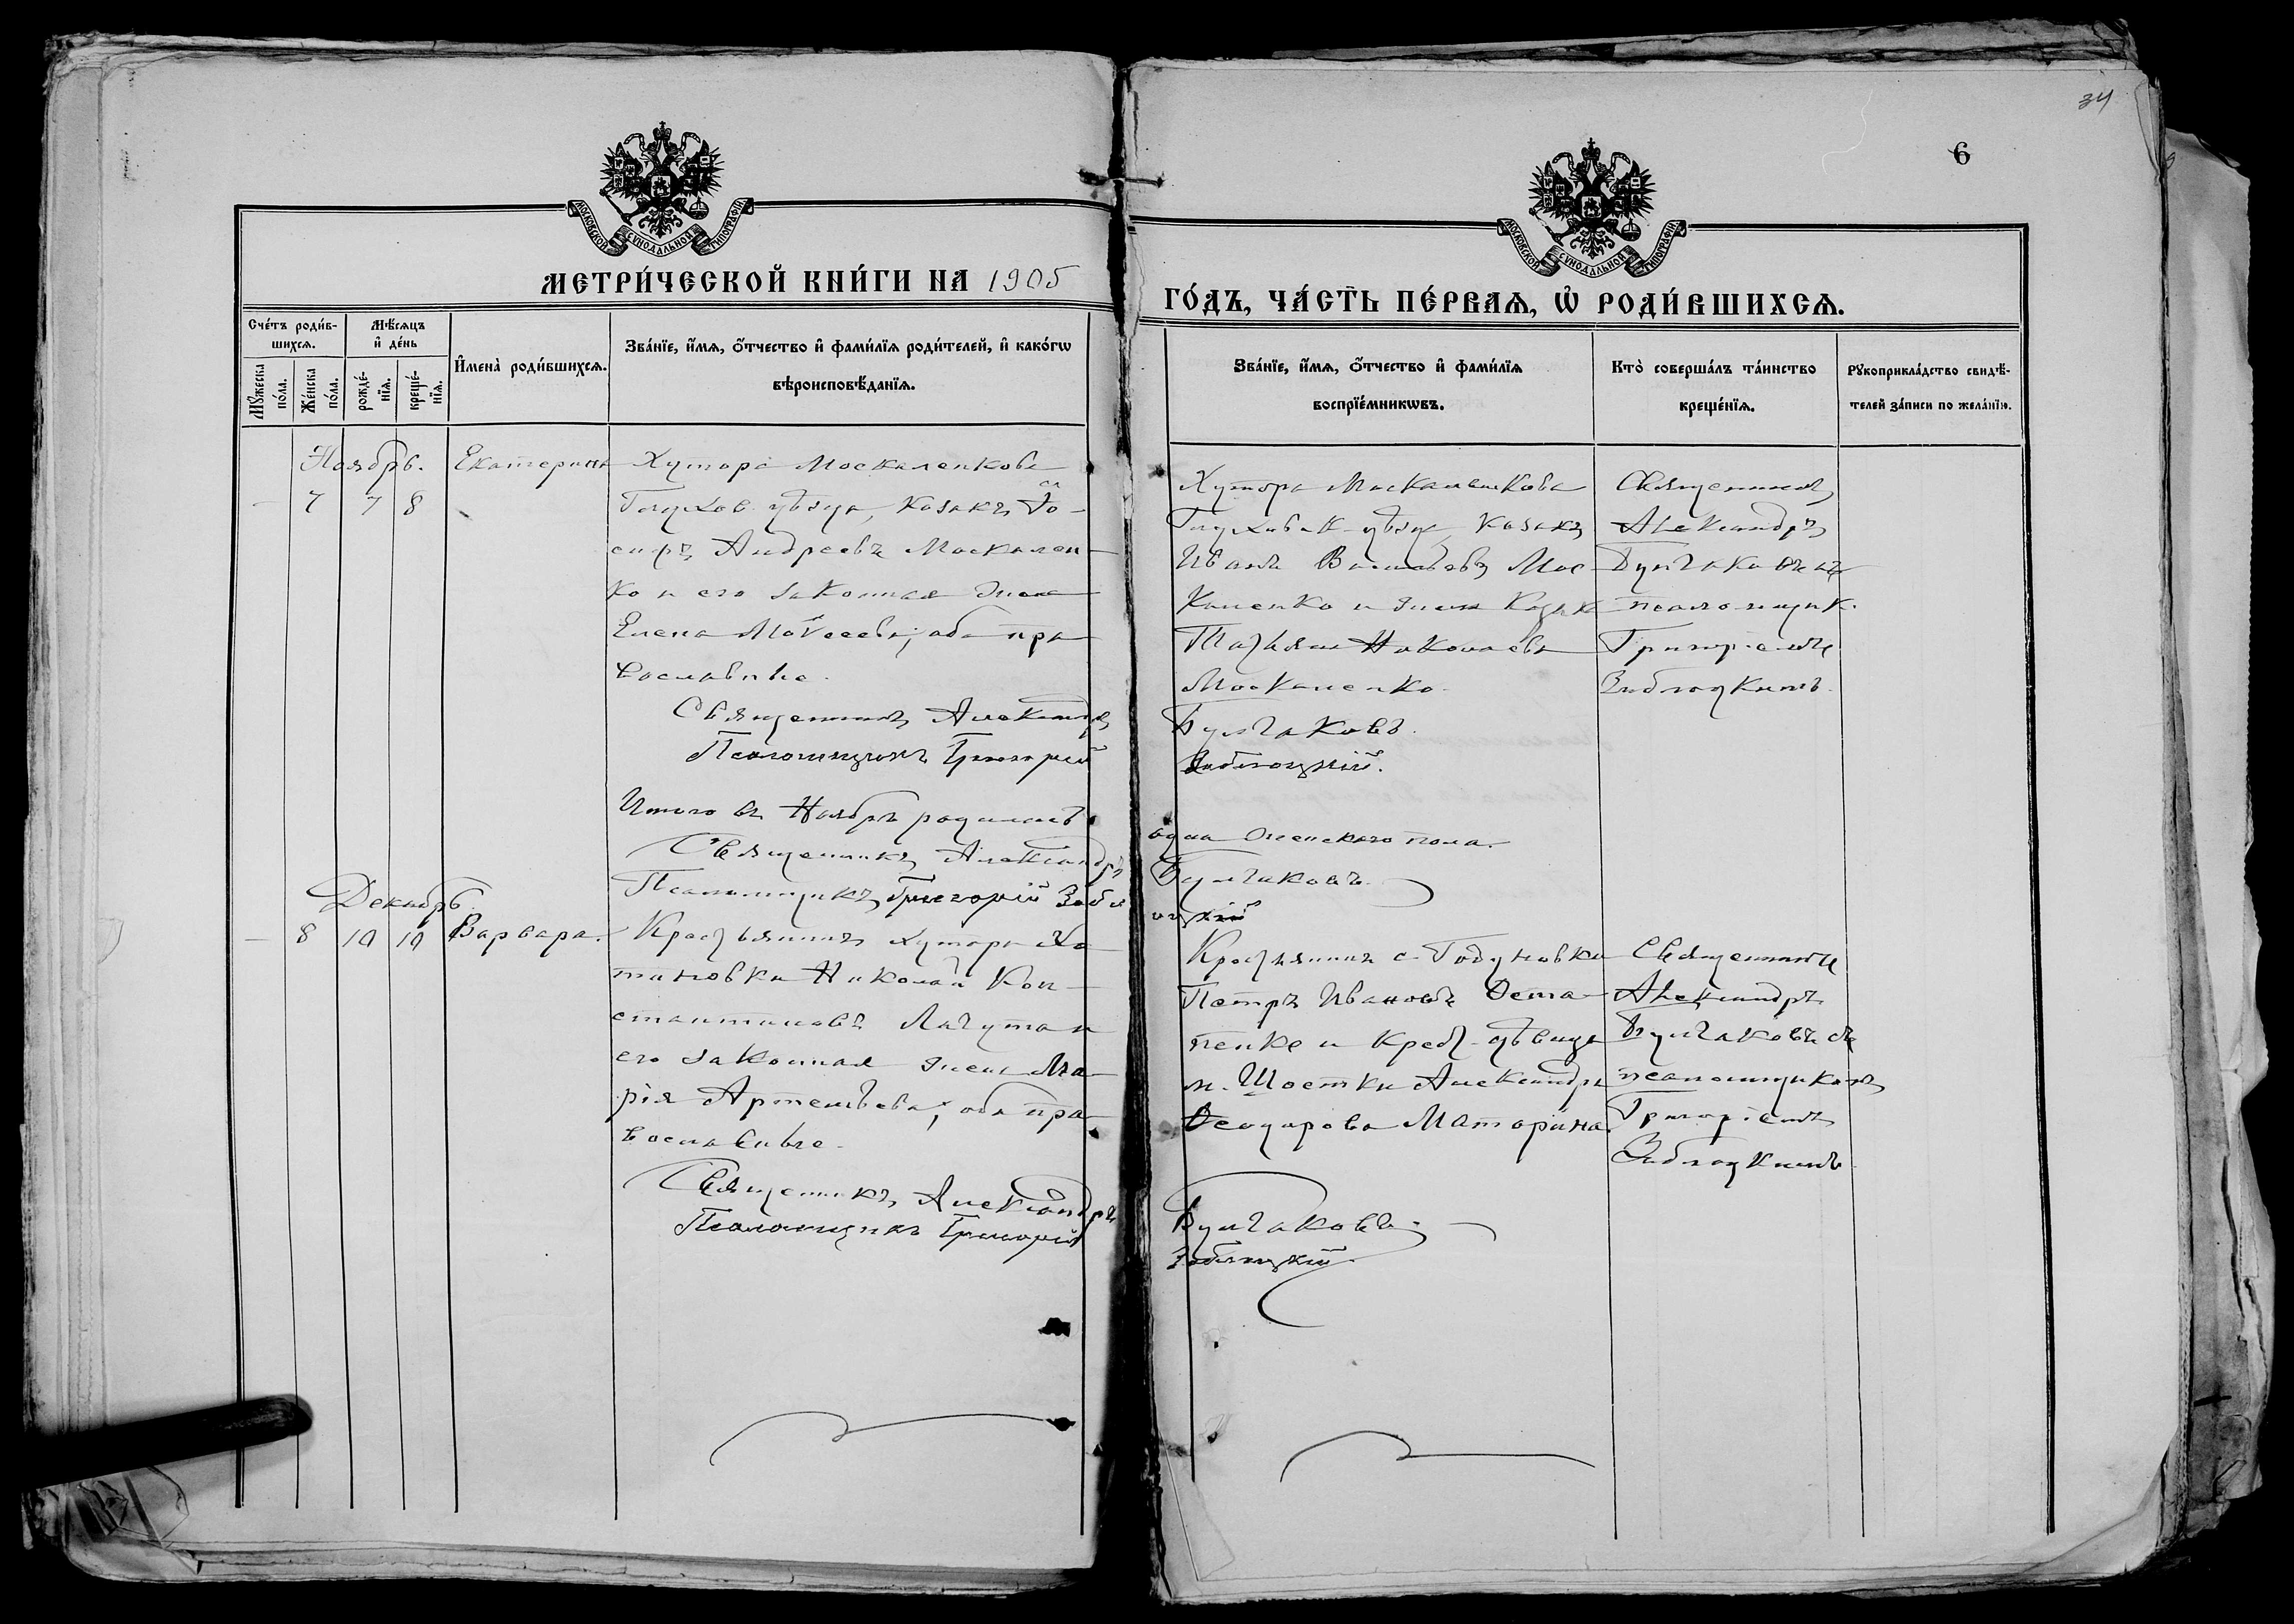 34
6
МОСКОВСКОЙ СУНОДАЛЬНОЙ ТИПОГРАФІИ
МОСКОВСКОЙ СУНОДАЛЬНОЙ ТИПОГРАФІИ
МЕТРИ́ЧЕСКОЙ КНИ́ГИ НА 1905
ГО́ДЪ, ЧА́СТЬ ПЕ́РВАѦ, Ѽ РОДИ́ВШИХСѦ.
Сче́тъ роди́в-
шихсѧ.
Мꙋ́жеска
по́ла.
Же́нска
по́ла.
Мѣ́сѧцъ
и҆ де́нь
рожде́-
нїѧ.
креще́-
нїѧ.
И҆мена̀ роди́вшихсѧ.
Зва́нїе, и҆́мѧ, о҆́тчество и҆ фами́лїѧ роди́телей, и҆ како́гѡ
вѣроисповѣ́данїѧ.
Зва́нїе, и҆́мѧ, о҆́тчество и҆ фами́лїѧ
воспрїе́мникѡвъ.
Кто̀ соверша́лъ та́инство
креще́нїѧ.
Рꙋкоприкла́дство свидѣ́-
телей за́писи по жела́нїю.
Ноябрь.
— 7 7 8
Екатерина
Хутора Москаленкова
Глухов. уѣзда, козакъ Іо-
сифъ Андреевъ Москален-
ко и его законная жена
Елена Моѵсеева; оба пра
вославные.
Священникъ Александръ
Псаломщикъ Григорій
Хутора Москаленкова
Глуховск. уѣзда, козакъ
Иванъ Васильевъ Мос-
каленко и жена козака
Татьяна Николаева
Москаленко.
Булгаковъ.
Заблоцкій.
Священникъ
Александръ
Булгаковъ съ
псаломщик.
Григоріемъ
Заблоцкимъ.
Итого въ Ноябрѣ родилась
одна женскаго пола.
Священникъ Александръ
Булгаковъ.
Псаломщикъ Григорій Забл
оцкій
Декабрь.
— 8 10 10
Варвара.
Крестьянинъ хутора Хо-
тиновки Николай Кон-
стантиновъ Лагута и
его законная жена Ма-
рія Артемьева; оба пра-
вославные.
Священникъ Александръ
Псаломщикъ Григорій
Крестьянин с. Годуновки
Петръ Ивановъ Оста-
пенко и крест. дѣвица
м. Шостки Александра
Ѳеодорова Маторина.
Булгаковъ.
Заблоцкій.
Священникъ
Александръ
Булгаковъ съ
псаломщикомъ
Григоріемъ
Заблоцкимъ.